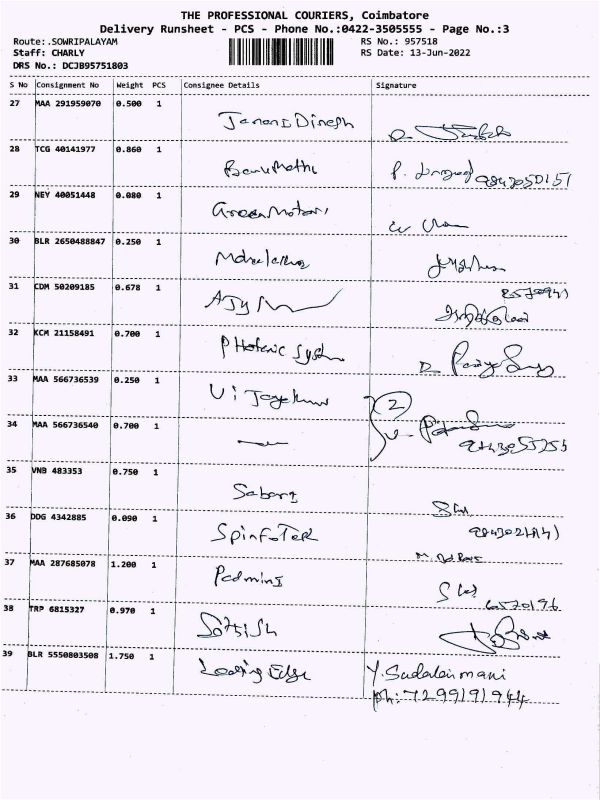 THE PROFESSIONAL COURIERS, Coimbatore
Delivery Runsheet - PCS - Phone No.:0422-3505555 - Page No.:3
Route:.SOWRIPALAYAM RS No.: 957518
Staff: CHARLY RS Date: 13-Jun-2022
DRS No.: DCJB95751803
S No Consignment No Weight PCS Consignee Details Signature
27 MAA 291959070 0.500 1 Janani Dinesh
28 TCG 40141977 0.860 1 Banumathi
29 NEY 40051448 0.080 1 Green Motors
30 BLR 2650488847 0.250 1
31 CDM 50209185 0.678 1
32 KCM 21158491 0.700 1 Photonic System
33 MAA 566736539 0.250 1 Vijayakumar 2
34 MAA 566736540 0.700 1
35 VNB 483353 0.750 1
36 DDG 4342885 0.090 1
37 MAA 287685078 1.200 1 Padmini
38 TRP 6815327 0.970 1 Sathish
39 BLR 5550803508 1.750 1 Leading Edge Y. Sudalaimani
Ph: 7299191944